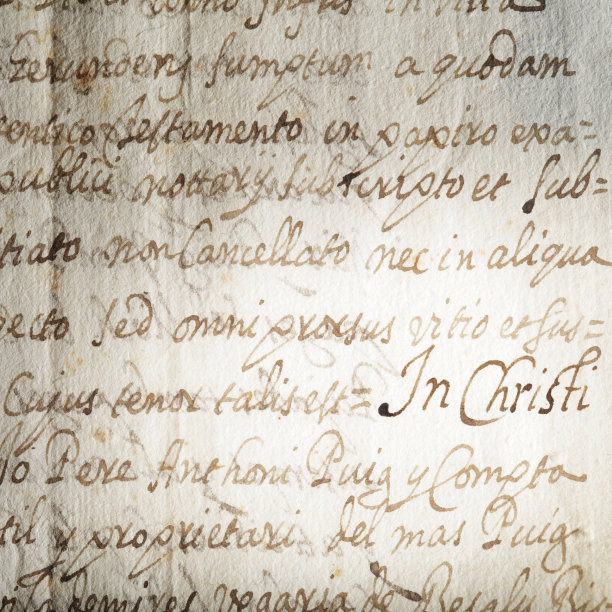 in
sumptum a quodam
testamento in papiro exa=
publici nottarij subscripto et sub=
tiato non Cancellato nec in aliqua
pecto sed omni prorsus vitio et sus=
Cujus tenor talis est= In Christi
Jo Pere Anthoni Puig y Compta
til y proprietari del mas Puig
de Besalu